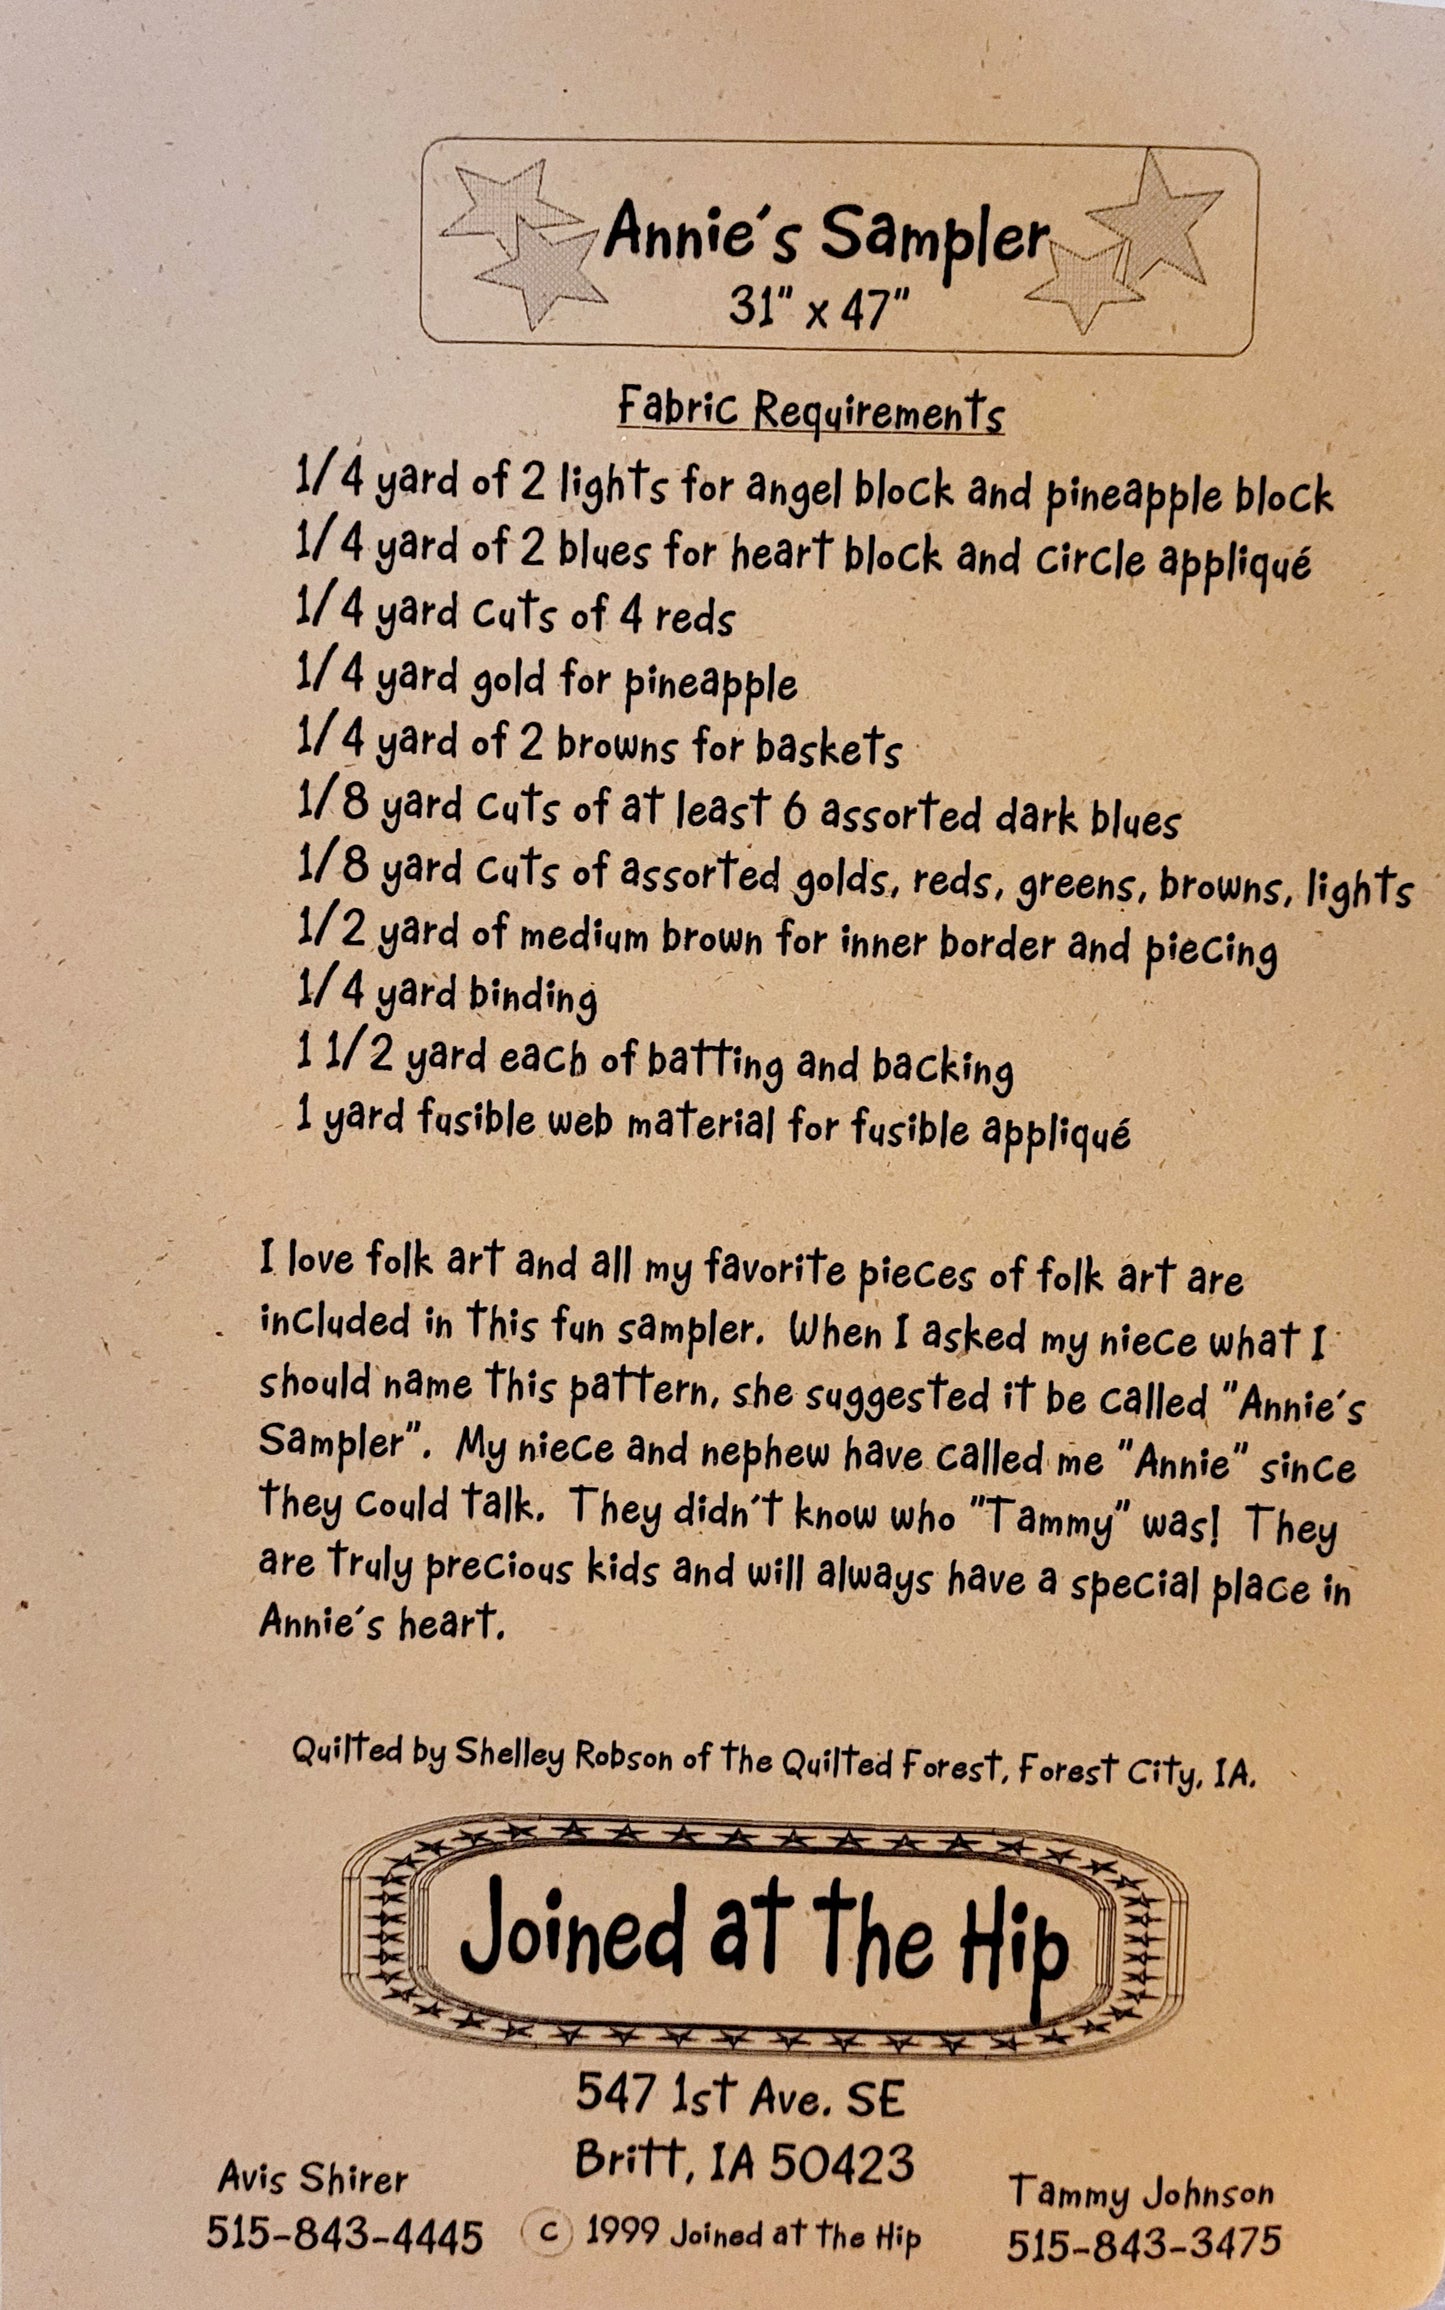 Annie's Sampler
31" x 47"
Fabric Requirements
1/4 yard of 2 lights for angel block and pineapple block
1/4 yard of 2 blues for heart block and circle appliqué
1/4 yard cuts of 4 reds
1/4 yard gold for pineapple
1/4 yard of 2 browns for baskets
1/8 yard cuts of at least 6 assorted dark blues
1/8 yard cuts of assorted golds, reds, greens, browns, lights
1/2 yard of medium brown for inner border and piecing
1/4 yard binding
1 1/2 yard each of batting and backing
1 yard fusible web material for fusible appliqué
I love folk art and all my favorite pieces of folk art are
included in this fun sampler.  When I asked my niece what I
should name this pattern, she suggested it be called "Annie's
Sampler".  My niece and nephew have called me "Annie" since
they could talk.  They didn't know who "Tammy" was!  They
are truly precious kids and will always have a special place in
Annie's heart.
Quilted by Shelley Robson of the Quilted Forest, Forest City, IA.
Joined at the Hip
547 1st Ave. SE
Britt, IA 50423
Avis Shirer
515-843-4445
© 1999 Joined at the Hip
Tammy Johnson
515-843-3475